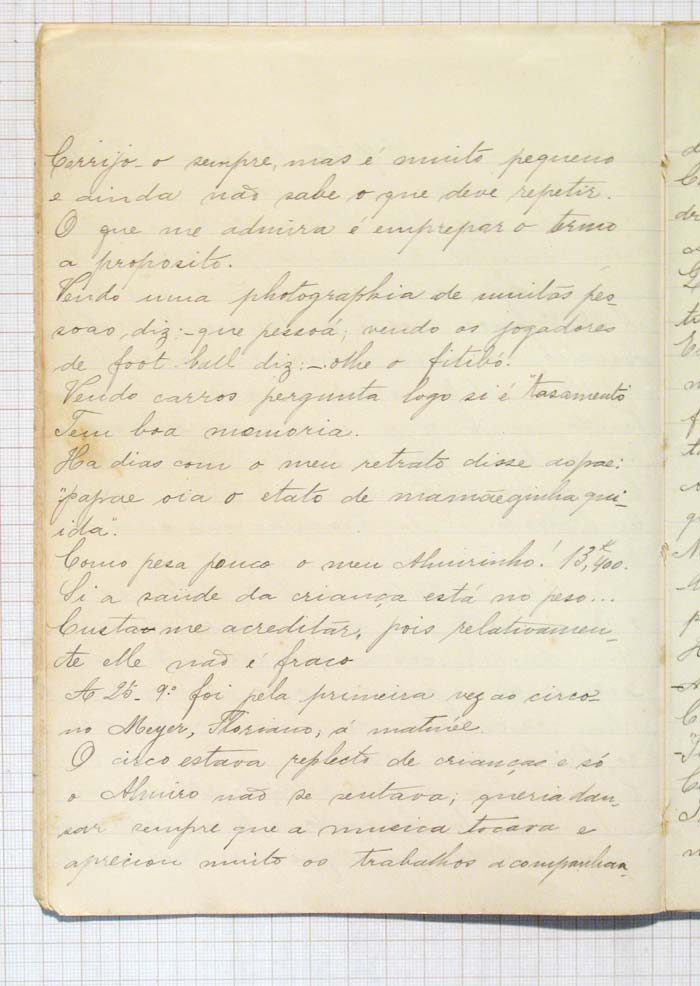 Corrijo-o sempre, mas é muito pequeno
e ainda não sabe o que deve repetir.
O que me admira é emprepar o termo
a proposito.
Vendo uma photographia de muitas pes-
soas, diz:- que pessoá; vendo os jogadores
de foot-ball diz:- olhe o fitibó.
Vendo carros pergunta logo si é "tasamento"
Tem boa memoria.
Ha dias com o meu retrato disse ao pae:
"papae oia o etato de mamãeginha qui-
ida".
Como pesa pouco o meu Almirinho! 13,k400.
Si a saude da criança está no peso...
Custa-me acreditar, pois relativamen-
te elle não é fraco
A 25-9º foi pela primeira vez ao circo-
no Meyer, Floriano, á matinée.
O circo estava replecto de crianças e só
o Almiro não se sentava; queria dan-
sar sempre que a musica tocava e
apreciou muito os trabalhos acompanhan-